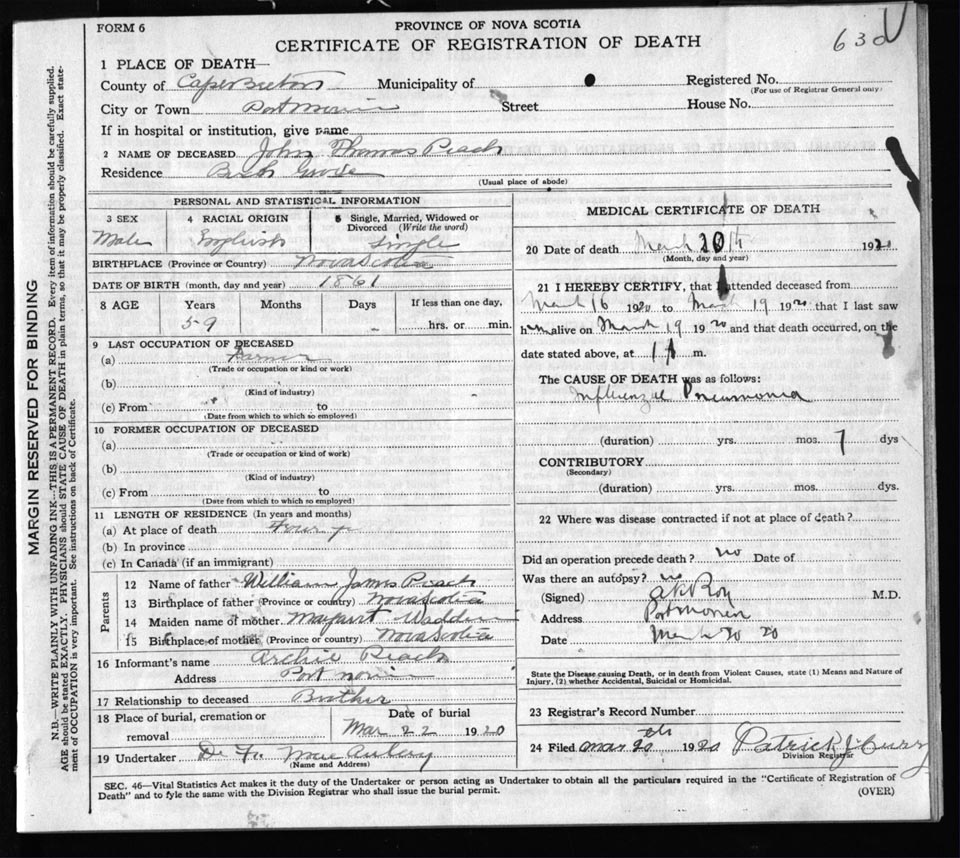 FORM 6
PROVINCE OF NOVA SCOTIA
CERTIFICATE OF REGISTRATION OF DEATH
630
1 PLACE OF DEATH—
County of Cape Breton Municipality of Registered No.
(For use of Registrar General only)
City or Town Port Morien Street House No.
If in hospital or institution, give name
2 NAME OF DECEASED John Thomas Peach
Residence Birch Grove
(Usual place of abode)
PERSONAL AND STATISTICAL INFORMATION
3 SEX 4 RACIAL ORIGIN 5 Single, Married, Widowed or Divorced (Write the word)
Male English Single
BIRTHPLACE (Province or Country) Nova Scotia
DATE OF BIRTH (month, day and year) 1861
8 AGE Years Months Days If less than one day,
59 hrs. or min.
9 LAST OCCUPATION OF DECEASED
(a) Farmer
(Trade or occupation or kind or work)
(b)
(Kind of industry)
(c) From to
(Date from which to which so employed)
10 FORMER OCCUPATION OF DECEASED
(a)
(Trade or occupation or kind of work)
(b)
(Kind of industry)
(c) From to
(Date from which to which so employed)
11 LENGTH OF RESIDENCE (In years and months)
(a) At place of death Four y
(b) In province
(c) In Canada (if an immigrant)
Parents
12 Name of father William James Peach
13 Birthplace of father (Province or country) Nova Scotia
14 Maiden name of mother Margaret Wadden
15 Birthplace of mother (Province or country) Nova Scotia
16 Informant's name Archie Peach
Address Port Morien
17 Relationship to deceased Brother
18 Place of burial, cremation or removal
Date of burial
Mar 22 1920
19 Undertaker
(Name and Address)
MEDICAL CERTIFICATE OF DEATH
20 Date of death March 20th 1920
(Month, day and year)
21 I HEREBY CERTIFY, that I attended deceased from
March 16 1920 to March 19 1920 that I last saw
him alive on March 19 1920 and that death occurred, on the
date stated above, at m.
The CAUSE OF DEATH was as follows:
Influenzal Pneumonia
(duration) yrs. mos. 7 dys
CONTRIBUTORY
(Secondary)
(duration) yrs. mos. dys.
22 Where was disease contracted if not at place of death?
Did an operation precede death? no Date of
Was there an autopsy? no
(Signed) Roy M.D.
Address Port Morien
Date March 20 20
State the Disease causing Death, or in death from Violent Causes, state (1) Means and Nature of
Injury, (2) whether Accidental, Suicidal or Homicidal.
23 Registrar's Record Number
24 Filed Mar 20th 1920 Patrick J Curry
Division Registrar
SEC. 46—Vital Statistics Act makes it the duty of the Undertaker or person acting as Undertaker to obtain all the particulars required in the "Certificate of Registration of
Death" and to fyle the same with the Division Registrar who shall issue the burial permit.
(OVER)
MARGIN RESERVED FOR BINDING
N.B.—WRITE PLAINLY WITH UNFADING INK—THIS IS A PERMANENT RECORD. Every item of information should be carefully supplied.
AGE should be stated EXACTLY. PHYSICIANS should STATE CAUSE OF DEATH in plain terms, so that it may be properly classified. Exact state-
ment of OCCUPATION is very important. See instructions on back of Certificate.